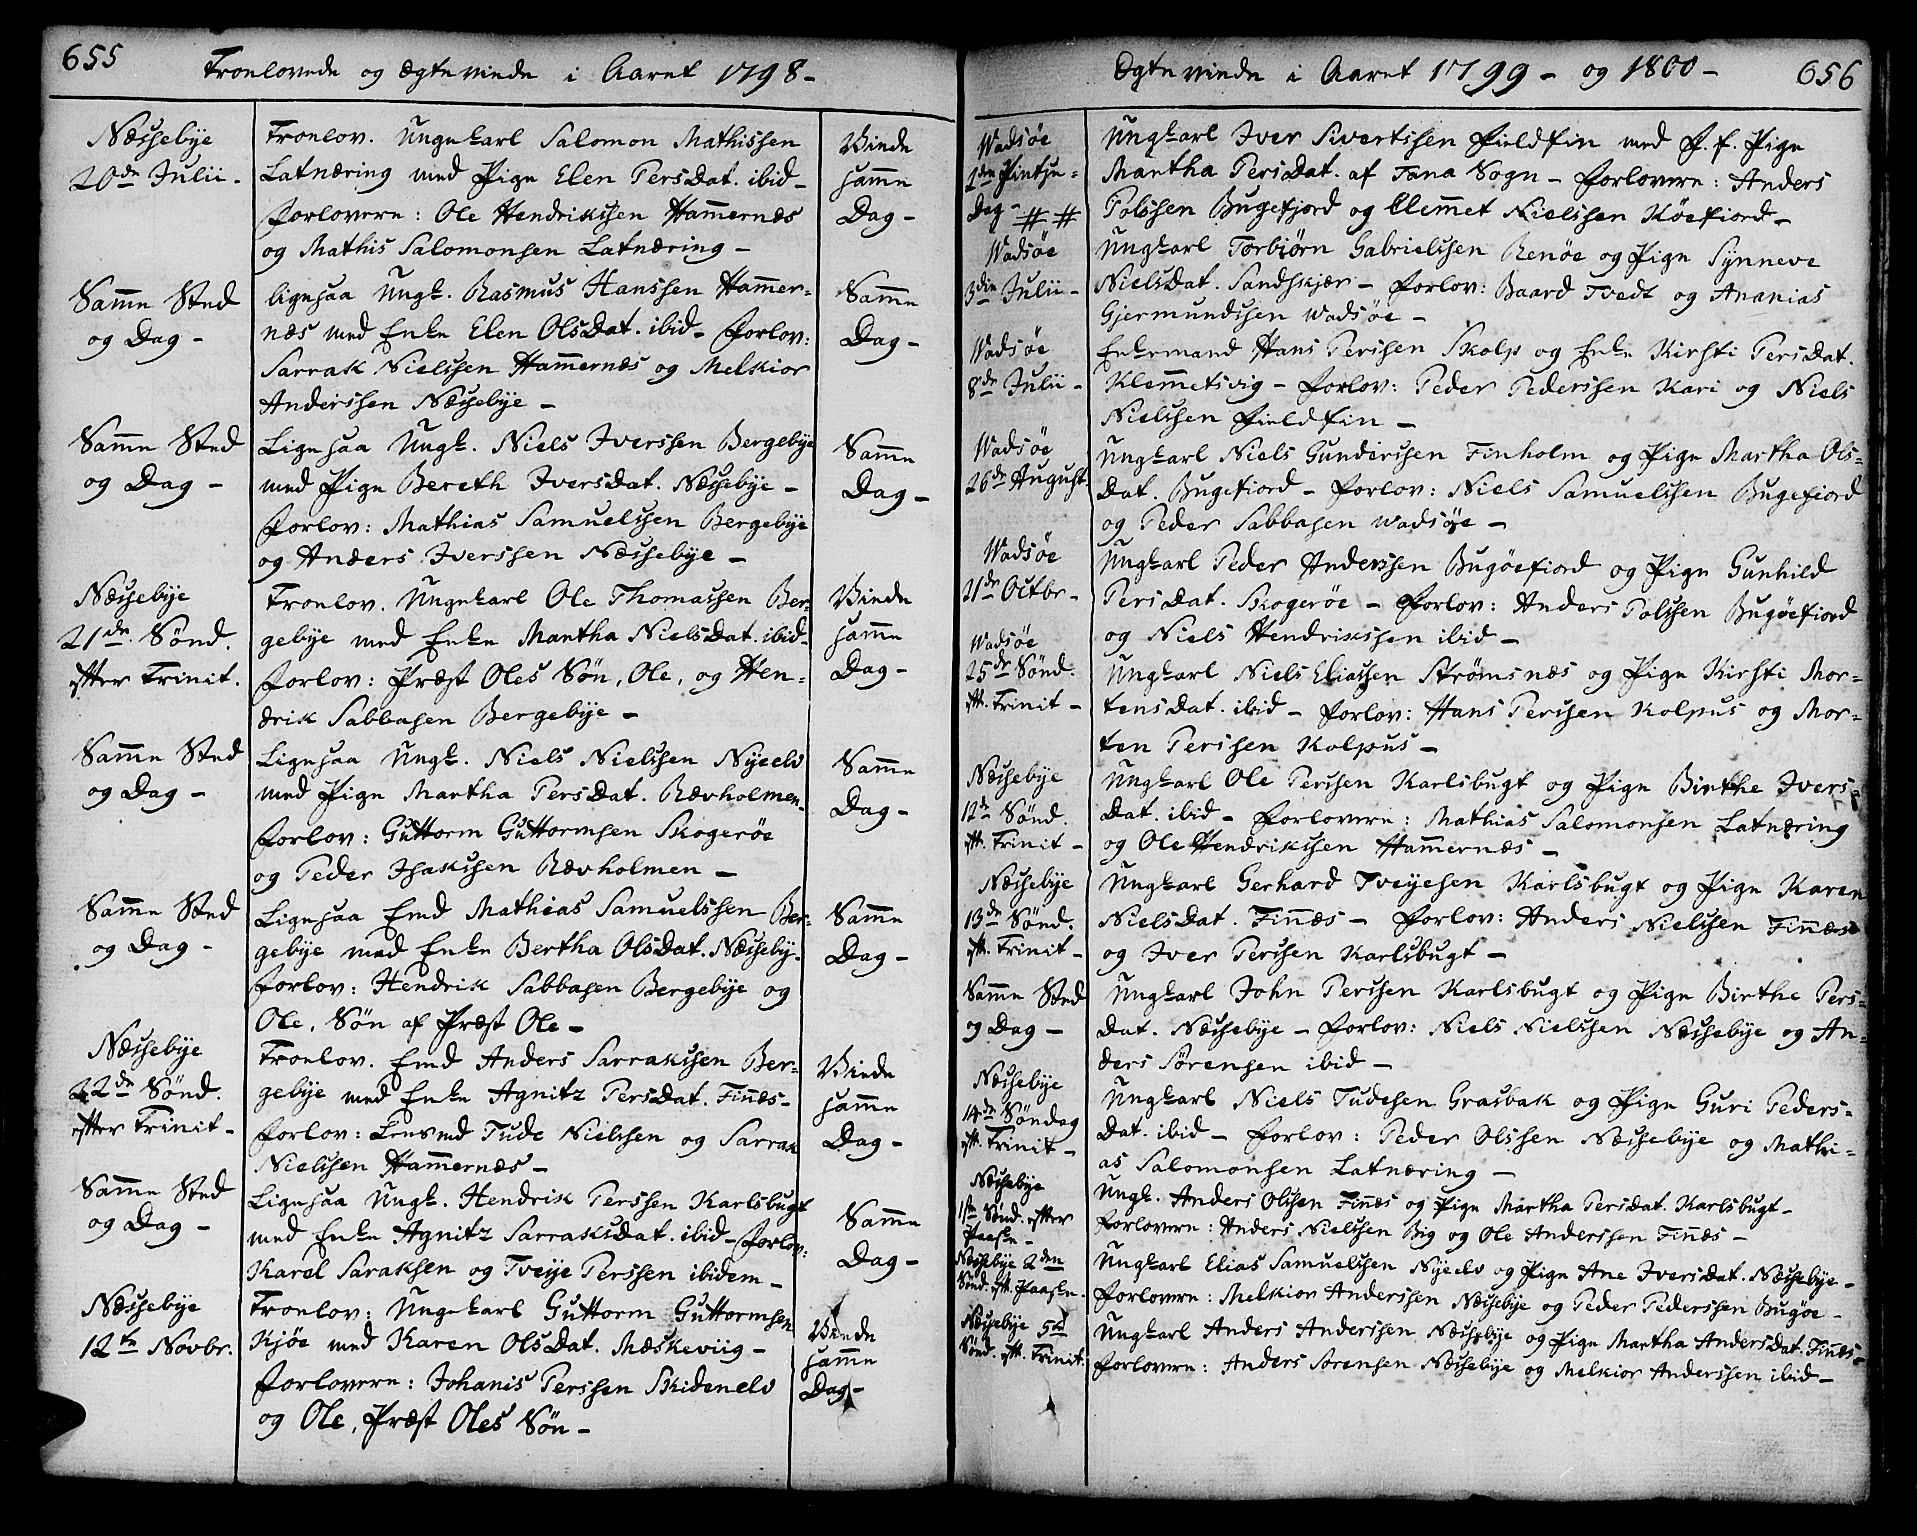 655
Troelovede og Ægteviede i Aaret 1798-
Næssebye
20de Julii-
Troelov. Ungekarl Salomon Mathissen
Latnæring med Pige Elen PersDat. ibid-
Forlovere: Ole Hendrikssen Hammernæs
og Mathis Salomonsen Latnæring-
Viede
samme
Dag-
Samme Sted
og Dag-
ligesaa Ungk. Rasmus Hanssen Hammer-
næs med Enke Elen OlsDat. ibid- Forlov:
Sarrak Nielssen Hammernæs og Melkior
Anderssen Næssebye-
Samme
Dag-
Samme Sted
og Dag-
Ligesaa Ungk. Niels Iverssen Bergebye
med Pige Bereth IversDat. Næssebye-
Forlov: Mathias Samuelssen Bergebye
og Anders Iverssen Næssebye-
Samme
Dag-
Næssebye
21de Sønd.
efter Trinit.
Troelov. Ungekarl Ole Thomassen Ber-
gebye med Enke Martha NielsDat. ibid-
Forlov: Præst Oles Søn, Ole, og Hen-
drik Sabbasen Bergebye-
Viede
samme
Dag-
Samme Sted
og Dag-
Ligesaa Ungk. Niels Nielssen Nyeelv
med Pige Martha PersDat. Rævholmen-
Forlov: Guttorm Guttormsen Skogerøe
og Peder Isakssen Rævholmen-
Samme
Dag-
Samme Sted
og Dag-
Ligesaa Emd Mathias Samuelssen Ber-
gebye med Enke Bertha OlsDat. Næsseby-
Forlov: Hendrik Sabbasen Bergebye og
Ole, Søn af Præst Ole-
Samme
Dag-
Næssebye
22de Sønd.
efter Trinit-
Troelov. Emd Anders Sarrakssen Ber-
gebye med Enke Agnitz PersDat. Finnæs-
Forlov: Lensmd Tude Nielssen og Sarrak
Nielssen Hammernæs-
Viede
samme
Dag-
Samme Sted
og Dag-
Ligesaa Ungk. Hendrik Perssen Karlsbugt
med Enke Agnitz SarraksDat. ibid- Forlov:
Karel Saraksen og Tveye Perssen ibidem-
Samme
Dag-
Næssebye
12te Novbr.
Troelov: Ungekarl Guttorm Guttormsen
Kjøe med Karen OlsDat. Mæskeviig-
Forlovere: Johanis Perssen Skidenelv
og Ole, Præst Oles Søn-
Viede
samme
Dag-
Ægteviede i Aaret 1799- og 1800-
656
Wadsøe
2den Pintse-
Dag- # #
Ungkarl Iver Sivertssen Fieldfin med F. f. Pige
Martha PersDat. af Tana Sogn- Forlovere: Anders
Polssen Bugefjord og Clemmet Nielssen Køefiord-
Wadsøe
3die Julii-
Ungkarl Torbiørn Gabrielssen Renøe og Pige Synneve
NielsDat. Sandskjær- Forlov: Baard Tvedt og Ananias
Gjermundssen Wadsøe-
Wadsøe
8de Julii-
Enkemand Hans Perssen Skolp og Enke Kirsti PersDat.
Klemmetsvig- Forlov: Peder Pederssen Kari og Niels
Nielssen Fieldfin-
Wadsøe
26de August
Ungkarl Niels Gunderssen Finholm og Pige Martha Ols-
Dat. Bugefiord- Forlov: Niels Samuelssen Bugefiord
og Peder Sabbasen Wadsøe-
Wadsøe
21de Octbr-
Ungkarl Peder Anderssen Bugøefiord og Pige Gunhild
PersDat. Skogerøe- Forlov: Anders Polssen Bugøefiord
og Niels Hendrikssen ibid-
Wadsøe
25de Sønd.
eft. Trinit-
Ungkarl Niels Eliassen Strømsnæs og Pige Kirsti Mor-
tensDat. ibid- Forlov: Hans Perssen Kolpus og Mor-
ten Perssen Kolpus-
Næssebye
12de Sønd.
eft. Trinit-
Ungkarl Ole Perssen Karlsbugt og Pige Birthe Ivers
Dat. ibid- Forlovere: Mathias Salomonsen Latnæring
og Ole Hendrikssen Hammernæs-
Næssebye
13de Sønd.
eft. Trinit-
Ungkarl Gerhard Tveyesen Karlsbugt og Pige Karen
NielsDat. Finnæs- Forlov: Anders Nielssen Finnæs
og Iver Perssen Karlsbugt-
Samme Sted
og Dag-
Ungkarl John Perssen Karlsbugt og Pige Birthe Pers-
Dat. Næssebye- Forlov: Niels Nielssen Næssebye og An-
ders Sørensen ibid-
Næssebye
14de Søndag
eft. Trinit-
Ungkarl Niels Tudesen Grasbak og Pige Guri Peders-
Dat. ibid- Forlov: Peder Olssen Næssebye og Mathi-
as Salomonsen Latnæring-
Næssebye
1ste Sønd. efter
Paaske-
Ungk. Anders Olssen Finnæs og Pige Martha PersDat. Karlsbugt-
Forlovere: Anders Nielssen Big og Ole Anderssen Finnæs-
Næssebye 2den
Sønd. eft. Paaske-
Ungkarl Elias Samuelssen Nyeelv og Pige Ane IversDat. Næssebye-
Forlovere: Melkior Anderssen Næssebye og Peder Pederssen Bugøe-
Næssebye 5te
Sønd. eft. Trinit.
Ungkarl Anders Anderssen Næssebye og Pige Martha AndersDat. Finæs-
Forlovere: Anders Sorensen Næssebye og Melkior Anderssen ibid-